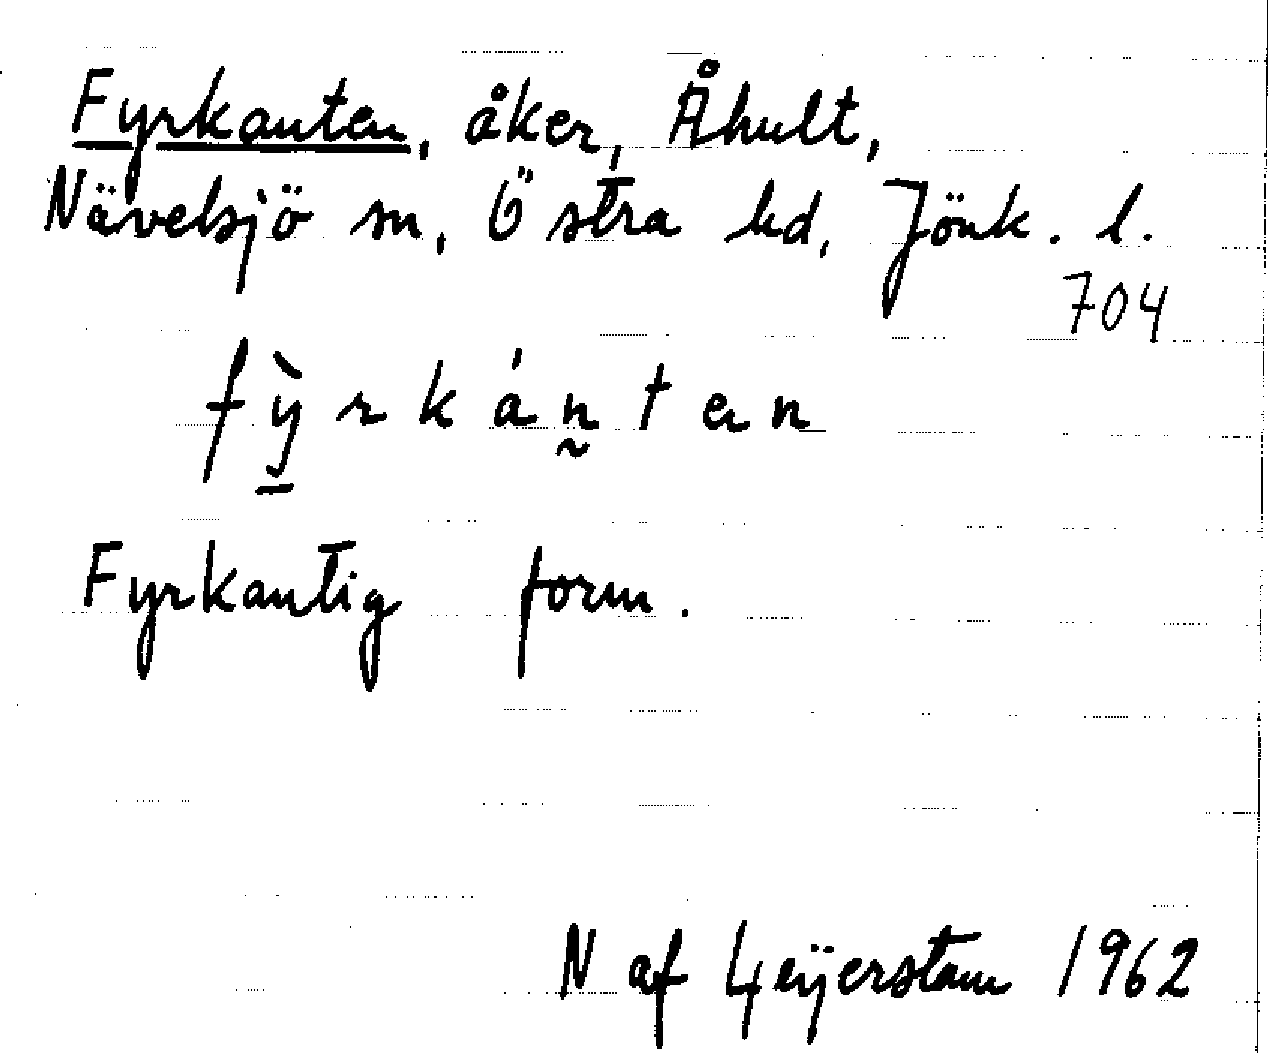 Fyrkanten, åker, Åhult,
Nävelsjö sn, Östra hd, Jönk. l.
704
fỳ̲rkán̰ten
Fyrkantig form.
N af Geijerstam 1962